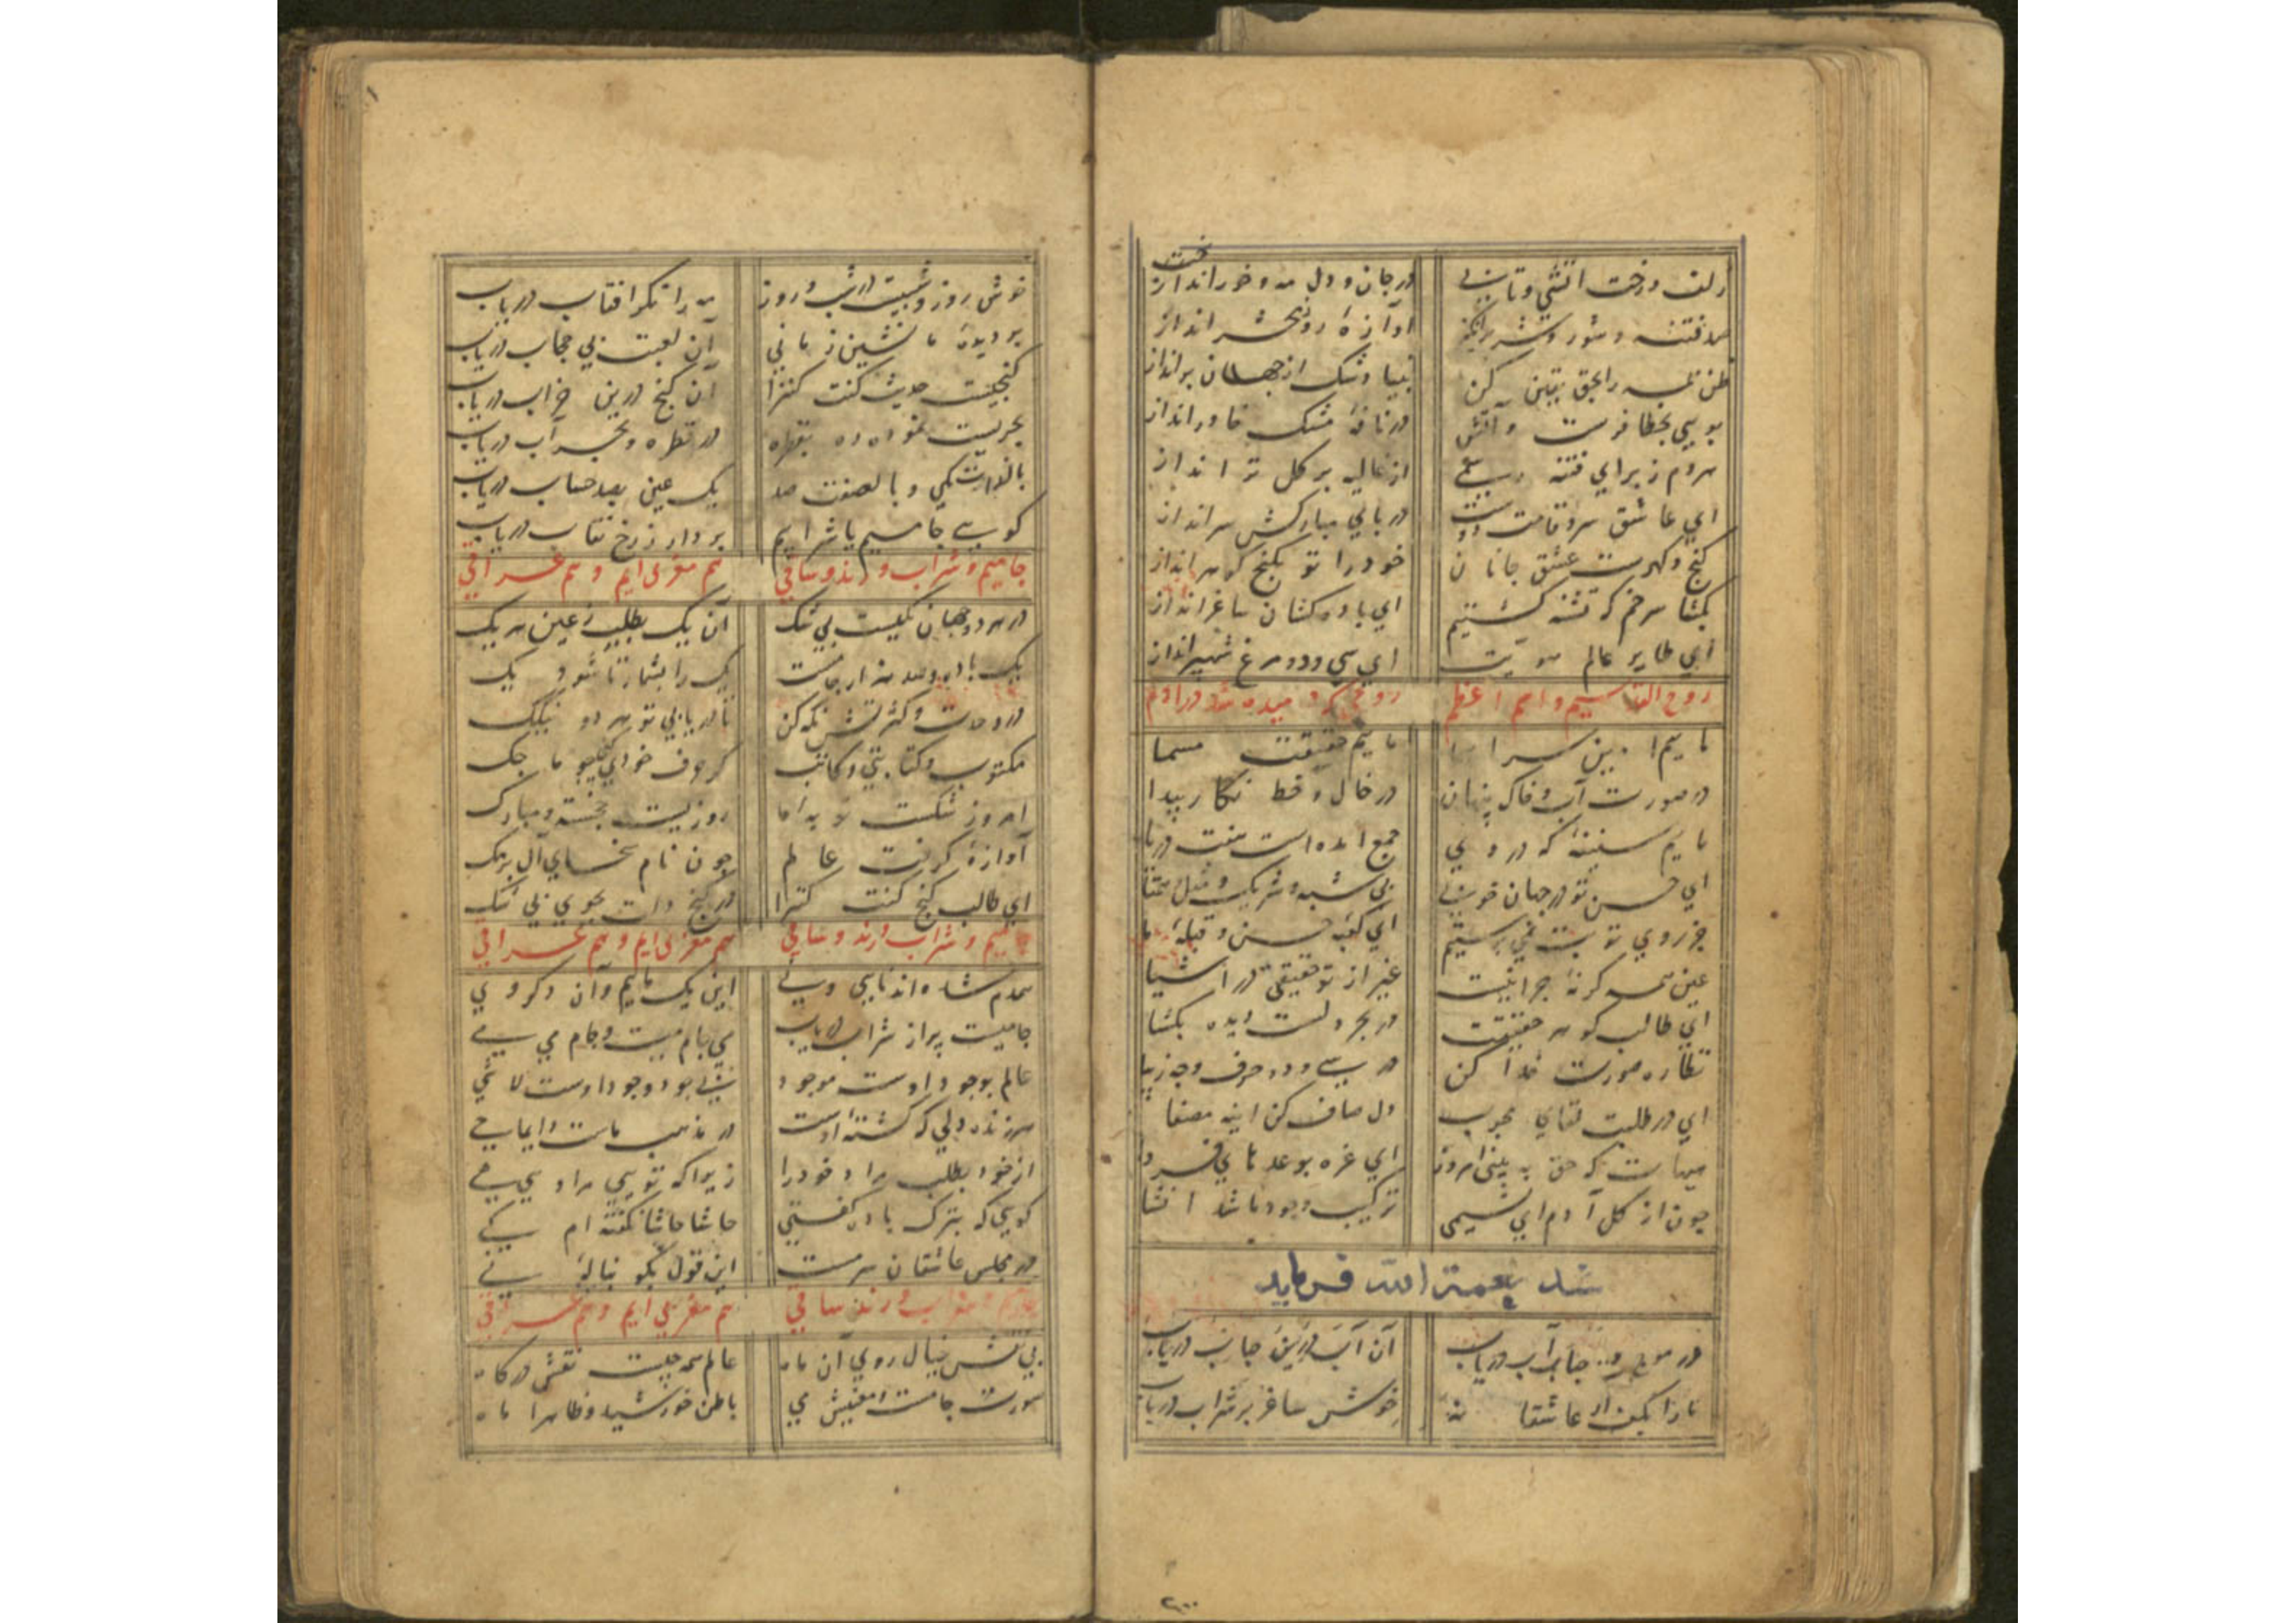 زلف و رخت آتشی و تابی در جان و دل مه و خور انداخت
صد فتنه و شور و شر برانگیز آوازهٔ روز محشر انداز
ظن همه را بحق یقین کن بنیاد شک از جهان برانداز
بویی بخطا فرست و آتش در نافهٔ مشک خاور انداز
هر دم ز برای فتنه از غالیه بر گل تر انداز
ای عاشق سرو قامت دوست در پای مبارکش سر انداز
گنج و گهرست عشق جانان خود را تو بگنج گوهر انداز
بگشا سر خم که تشنه گشتیم ای باده کشان ساغر انداز
ای طایر عالم هویت ای سی و دو مرغ شهپر انداز
روح القدسیم و اسم اعظم روحی که دمیده شد در آدم
مائیم حقیقت مسما
در صورت آب و خاک پنهان در خال و خط نگار پیدا
مائیم سفینهٔ که در وی جمع آمده است هفت دریا
ای حسن تو در جهان خوبی بی شبه و شریک و مثل و همتا
جز روی تو بت نمی پرستیم ای کعبهٔ حسن و قبلهٔ ما
عین همه گر نهٔ چرا نیست غیر از تو حقیقتی در اشیا
ای طالب گوهر حقیقت در بحر دلست دیده بگشا
نظاره صورت خدا کن در سی و دو حرف وجه زیبا
ای در طلبت لقای محبوب دل صاف کن آینه مصفا
هیهات که حق به بینی امروز ای غره بوعدهای فردا
چون از گل آدم ای نسیمی ترکیب وجود ما شد انشا
سید نعمة الله فرماید
در موج و حباب آب دریاب آن آب درین حباب دریاب
ما را بکف آر عاشقانه خوش ساغر پر شراب دریاب
خوش روز و شبیست در شب و روز مه را نگر آفتاب دریاب
بر دیدهٔ ما نشین زمانی آن لعبت بی حجاب دریاب
گنجیست حدیث کنت کنزا آن گنج درین خراب دریاب
بحریست نموده رو بقطره در قطره و بحر آب دریاب
بالذات یکی و بالصفت صد یک عین بصد حساب دریاب
گویی جامیم یا شرابیم بردار ز رخ نقاب دریاب
جامیم و شراب و رند و ساقی هم مغربی ایم و هم عراقی
در هر دو جهان یکیست بی شک آن یک بطلب ز عین هر یک
یک را بشمار تا شود یک
در وحدت و کثرتش نگه کن تا دریابی تو هر دو نیکک
مکتوب و کتابتی و کاتب
روزیست خجسته و مبارک
آوازه گرفت عالم چون نام سخای آل برمک
ای طالب گنج کنت کنزا در گنج دلت بجوی بی شک
جامیم و شراب و رند و ساقی هم مغربی ایم و هم عراقی
همدم شده اند نایی و نی این یک مائیم و آن دگر وی
جامیست پر از شراب دریاب بی جام میست و جام می بی
عالم بوجود اوست موجود بی بود وجود اوست لا شی
هر زنده دلی که کشته اوست در مذهب ماست دایما حی
از خود بطلب مراد خود را زیرا که تویی مراد هی هی
گویی که بترک باده گفتی حاشا حاشا نگفته ام کی
در مجلس عاشقان سرمست این قول بگو بنالهٔ نی
جامیم و شراب و رند و ساقی هم مغربی ایم و هم عراقی
بی نقش خیال روی آن ماه عالم همه چیست نقش درگاه
صورت جامست و معنیش می باطن خورشید و ظاهرا ماه